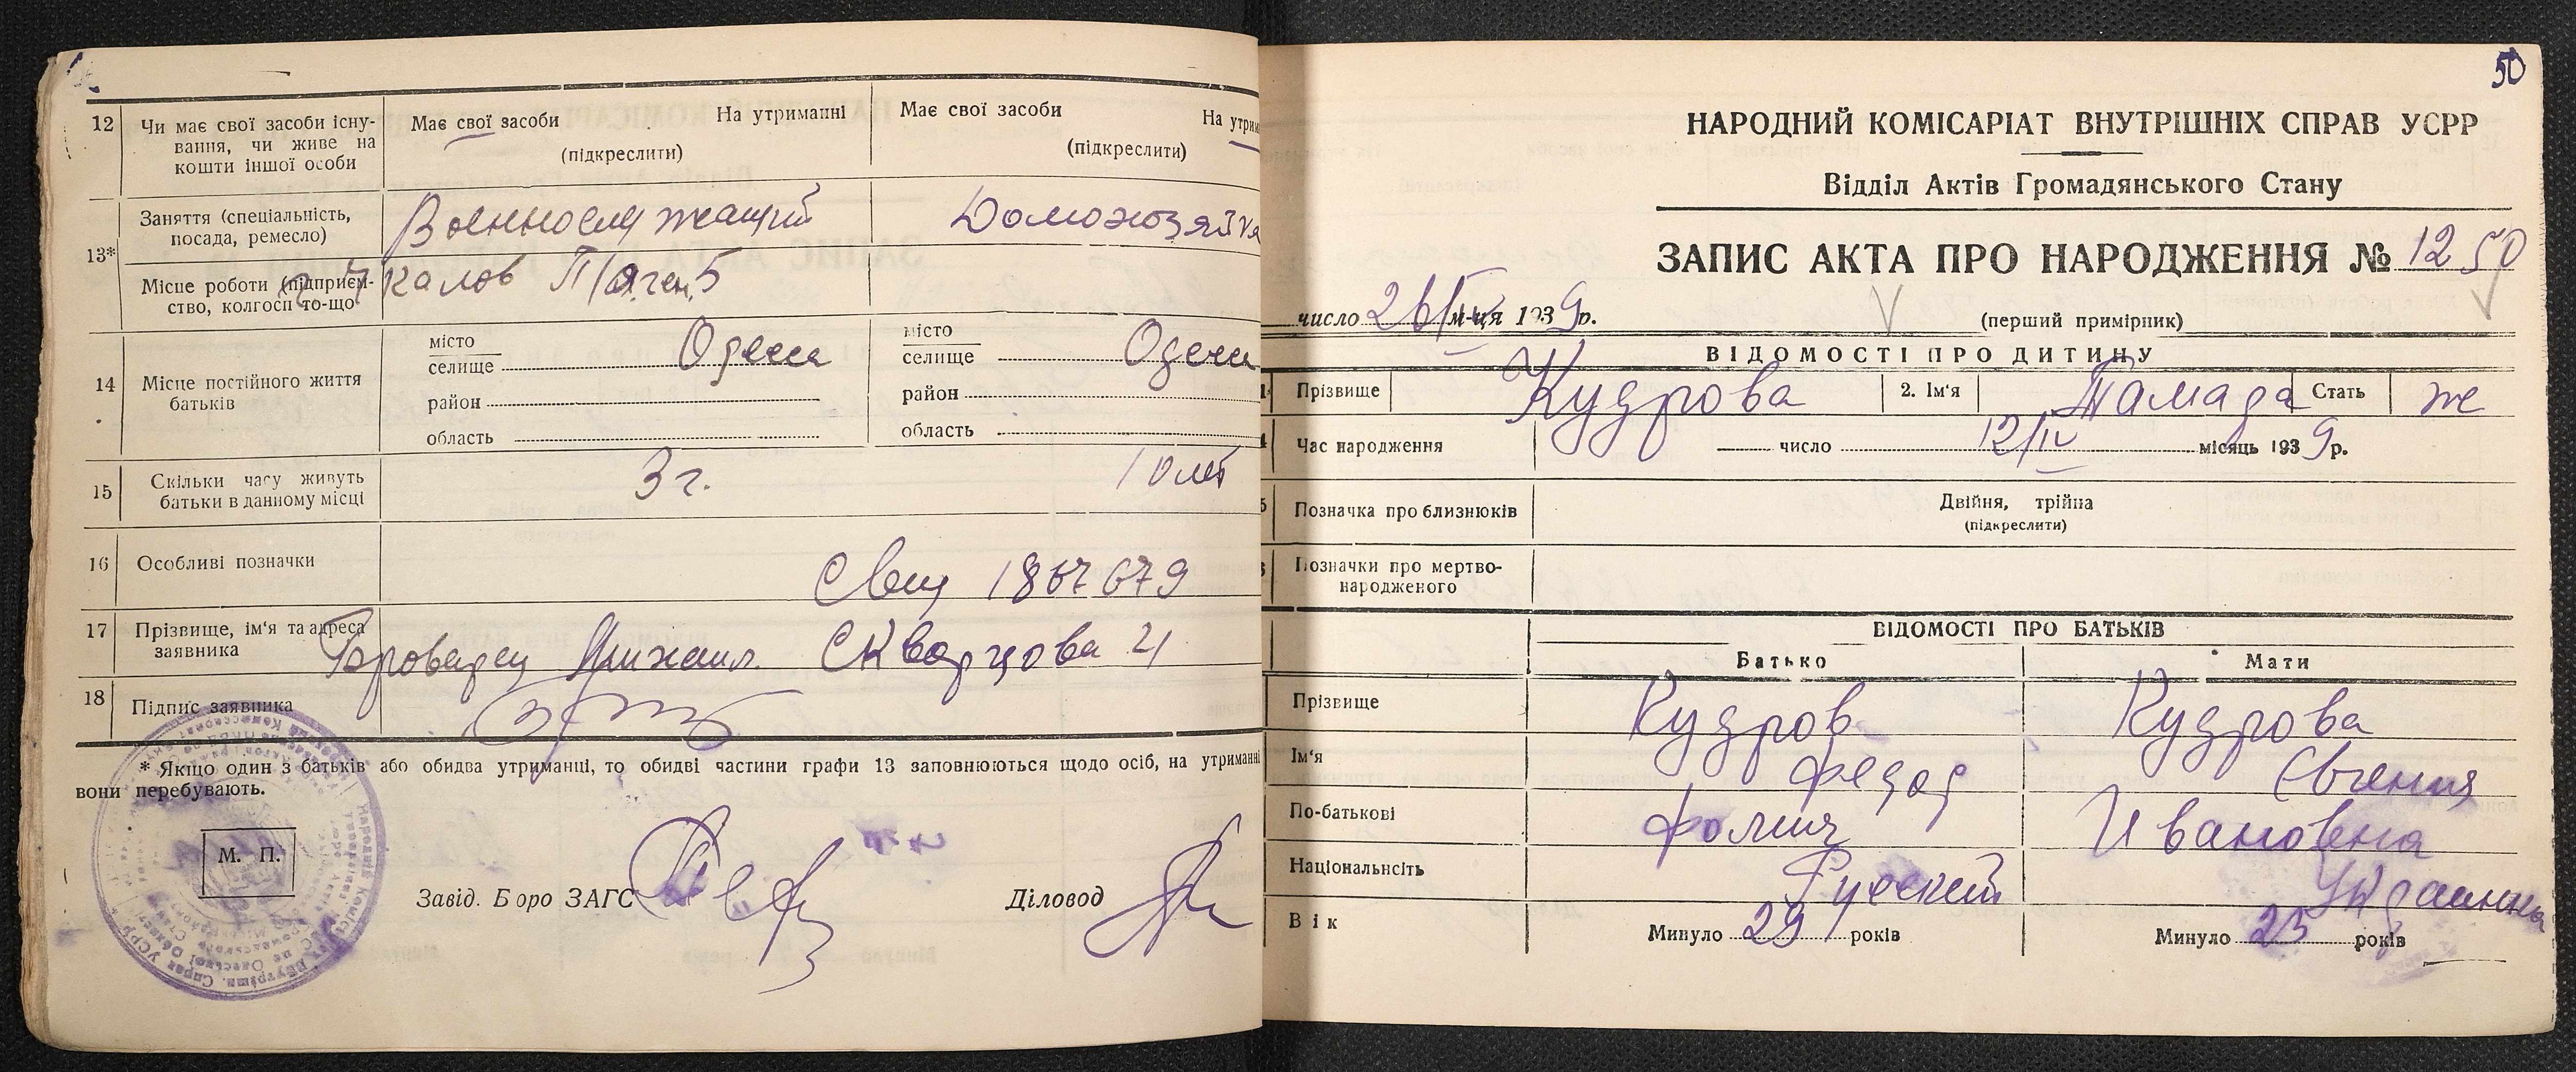 12
Чи має свої засоби існу-
вання, чи живе на
кошти іншої особи
Має свої засоби На утриманні
(підкреслити)
Має свої засоби На утрим
(підкреслити)
13*
Заняття (спеціальність,
посада, ремесло)
Военнослужащий
Домохозяйка
Місце роботи (підприєм-
ство, колгосп то-що
14
Місце постійного життя
батьків
місто
селище Одеса
район
область
місто
селище Одеса
район
область
15
Скільки часу живуть
батьки в данному місці
3 г.
10 лет
16
Особливі позначки
Свид 1867679
17
Прізвище, ім'я та адреса
заявника
Михаил. Скварцова 4
18
Підпис заявника
* Якщо один з батьків або обидва утриманці, то обидві частини графи 13 заповнюються щодо осіб, на утриманні
вони перебувають.
М. П.
Завід. Бюро ЗАГС
Діловод
50
НАРОДНИЙ КОМІСАРІАТ ВНУТРІШНІХ СПРАВ УСРР
Відділ Актів Громадянського Стану
ЗАПИС АКТА ПРО НАРОДЖЕННЯ № 1250
число 26/IV м-ця 1939р.
(перший примірник)
ВІДОМОСТІ ПРО ДИТИНУ
Прізвище Кудрова 2. Ім'я Тамара Стать же
Час народження число 12/IV місяць 1939р.
Позначка про близнюків
Двійня, трійня
(підкреслити)
Позначки про мертво-
народженого
ВІДОМОСТІ ПРО БАТЬКІВ
Батько Мати
Прізвище Кудров Кудрова
Ім'я Федор Евгения
По-батькові Фомич Ивановна
Національнсіть Русский Украинка
Вік Минуло 29 років Минуло 25 років